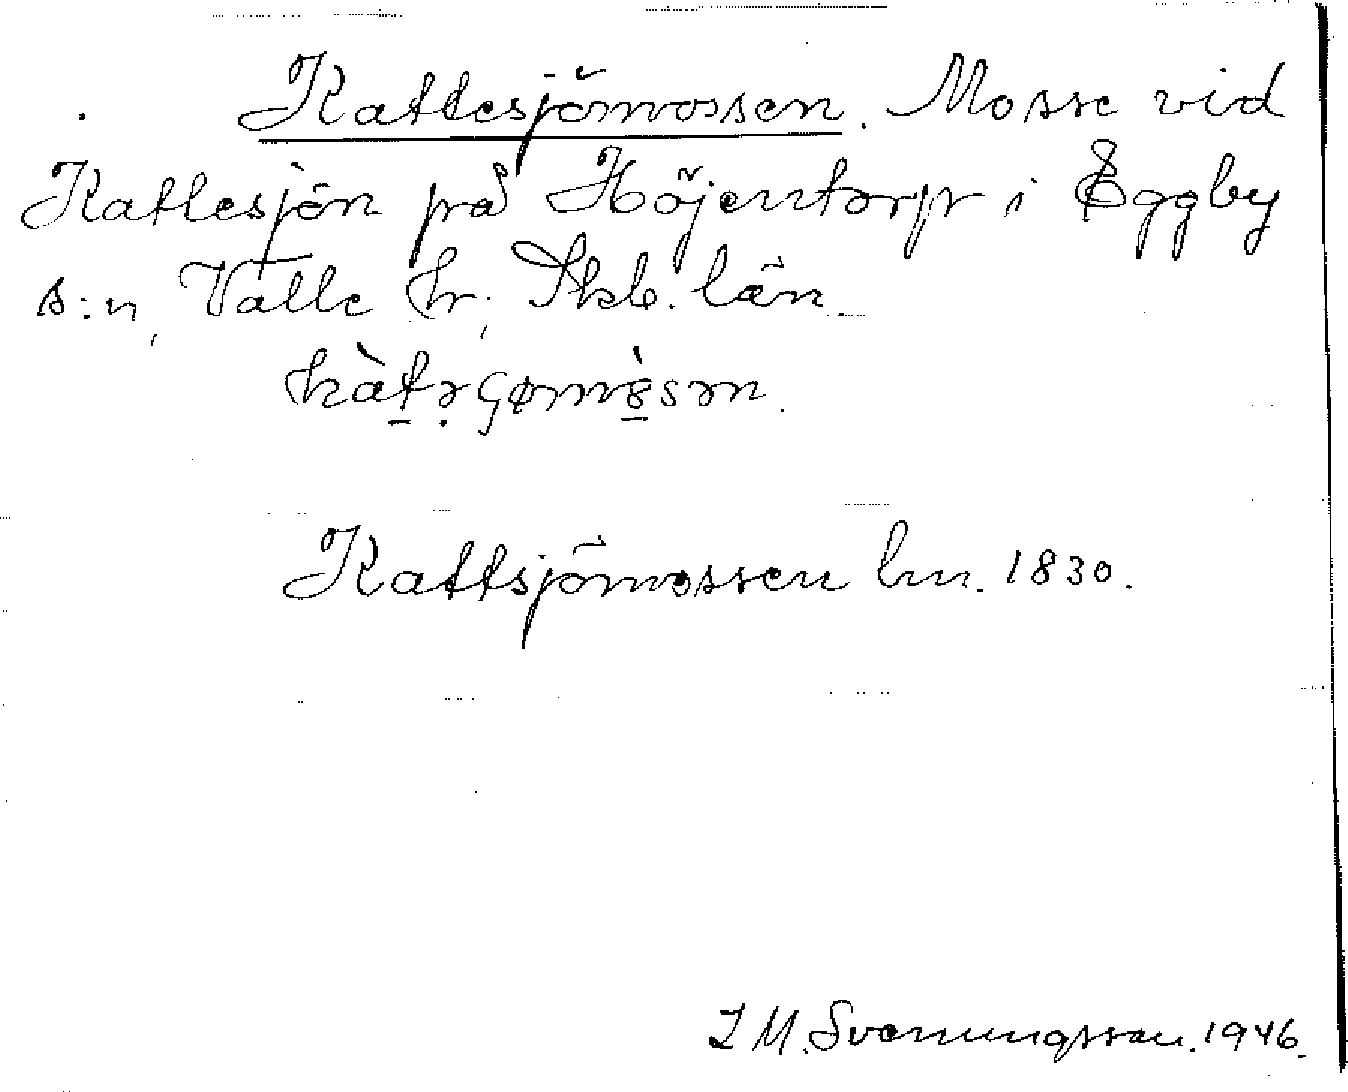 Kattesjömossen. Mosse vid
Kattesjön på Höjentorp i Eggby
s:n, Valle hr, Skb. län.
kàt̲ə̣ʕømò̲sən.
Kattsjömossen lm. 1830.
I M. Svenungsson. 1946.